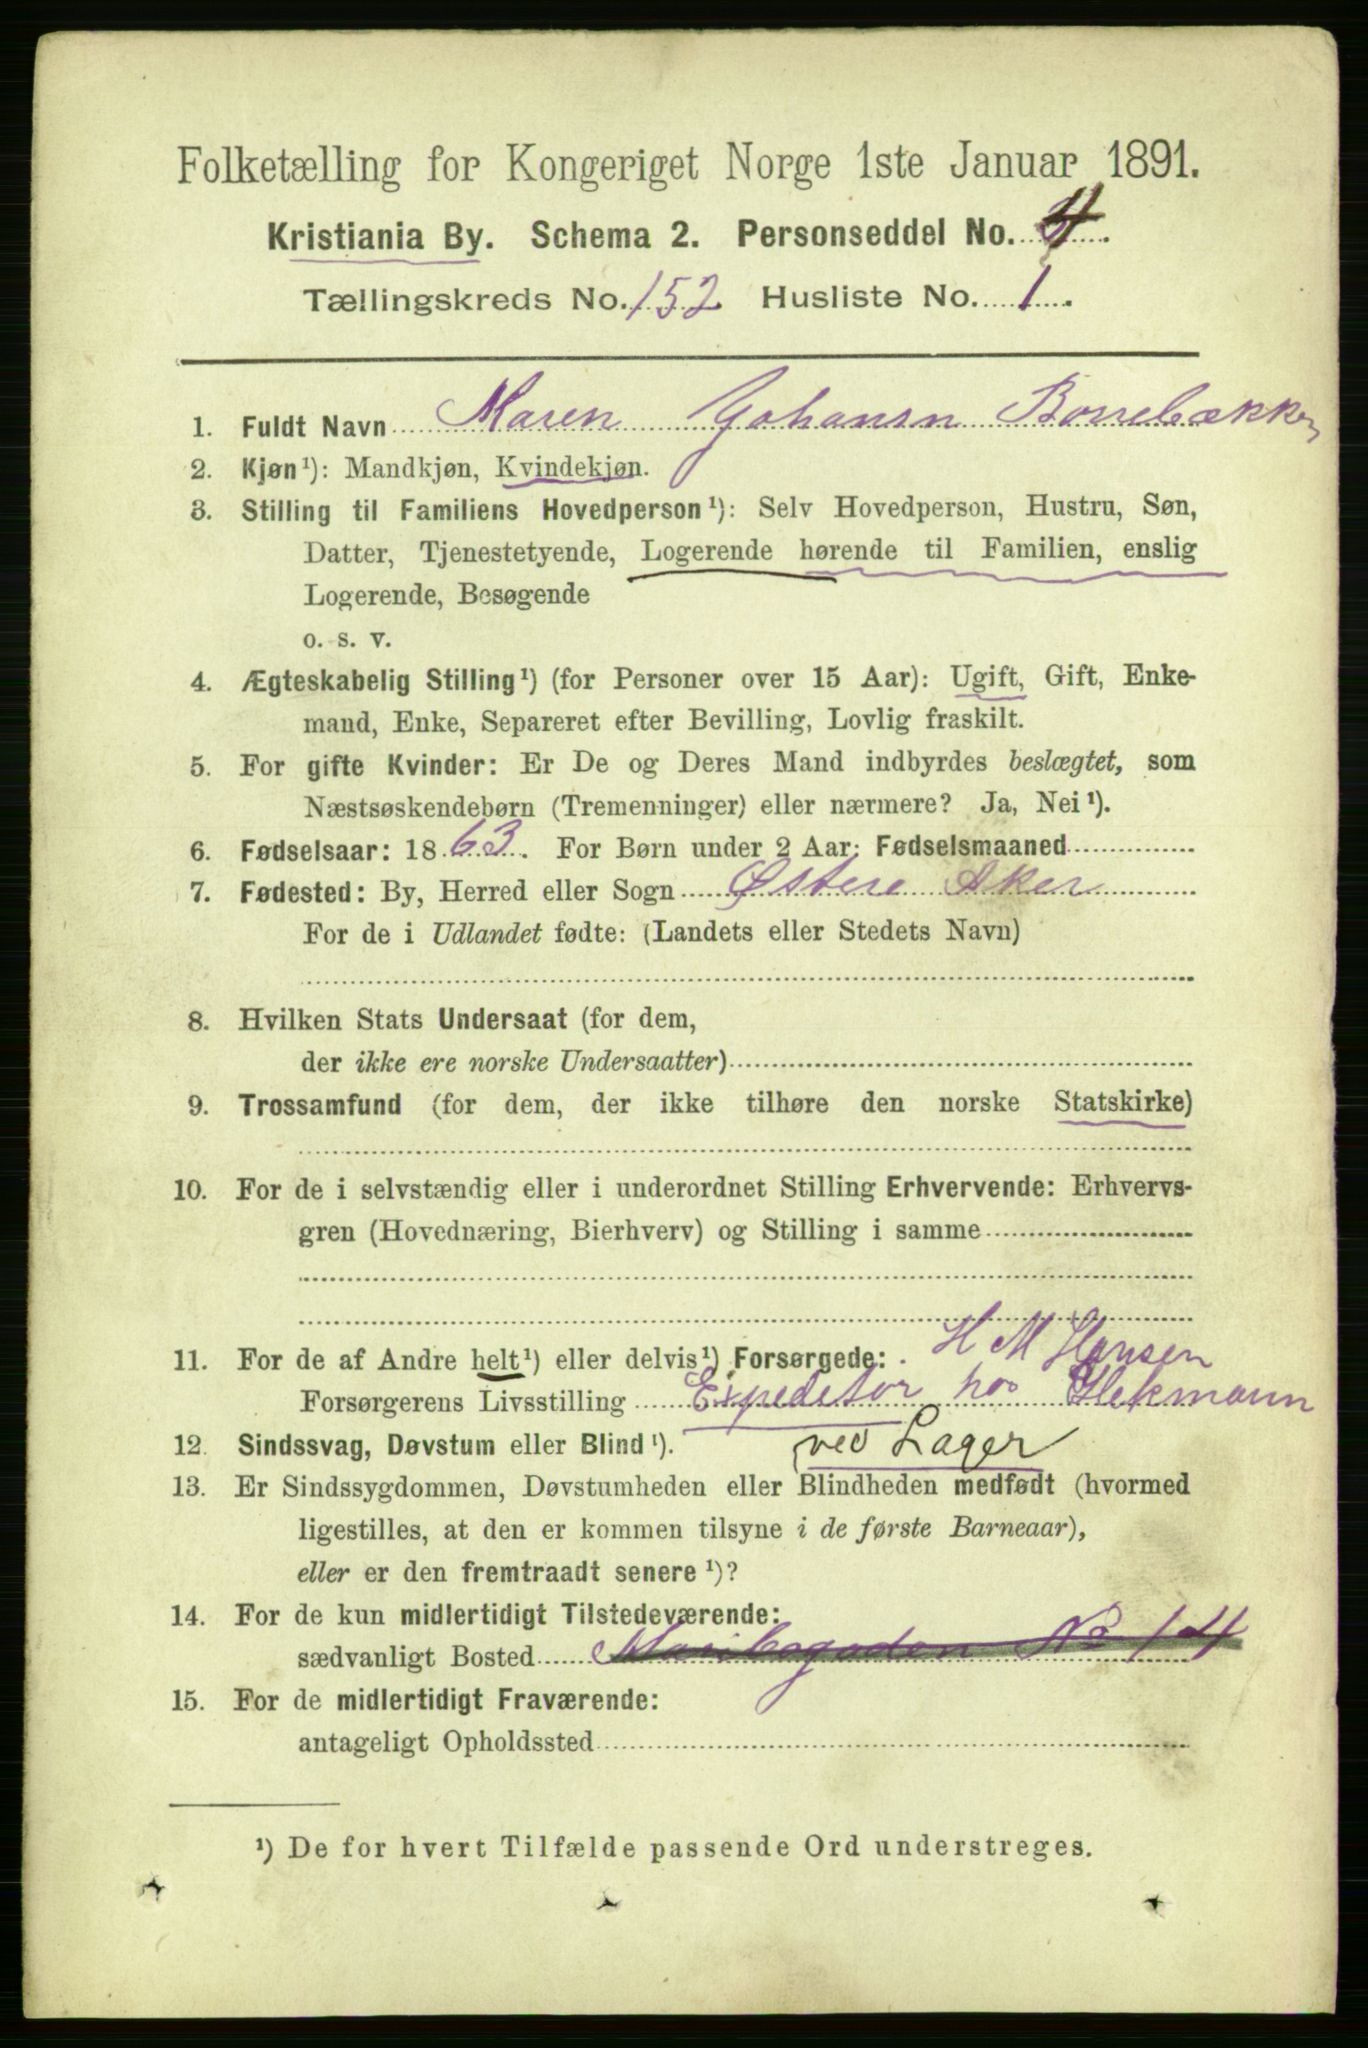 Folketælling for Kongeriget Norge 1ste Januar 1891.
Kristiania By. Schema 2. Personseddel No. 4.
Tællingskreds No. 152 Husliste No. 1.
1. Fuldt Navn Maren Johansn Borrebækken
2. Kjøn¹): Mandkjøn, Kvindekjøn.
3. Stilling til Familiens Hovedperson¹): Selv Hovedperson, Hustru, Søn,
Datter, Tjenestetyende, Logerende hørende til Familien, enslig
Logerende, Besøgende
o. s. v.
4. Ægteskabelig Stilling¹) (for Personer over 15 Aar): Ugift, Gift, Enke-
mand, Enke, Separeret efter Bevilling, Lovlig fraskilt.
5. For gifte Kvinder: Er De og Deres Mand indbyrdes beslægtet, som
Næstsøskendebørn (Tremenninger) eller nærmere? Ja, Nei¹).
6. Fødselsaar: 1863. For Børn under 2 Aar: Fødselsmaaned
7. Fødested: By, Herred eller Sogn Østere Aker
For de i Udlandet fødte: (Landets eller Stedets Navn)
8. Hvilken Stats Undersaat (for dem,
der ikke ere norske Undersaatter)
9. Trossamfund (for dem, der ikke tilhøre den norske Statskirke)
10. For de i selvstændig eller i underordnet Stilling Erhvervende: Erhvervs-
gren (Hovednæring, Bierhverv) og Stilling i samme
11. For de af Andre helt¹) eller delvis¹) Forsørgede: H M Hansen
Forsørgerens Livsstilling Expeditør hos
12. Sindssvag, Døvstum eller Blind¹). ved Lager
13. Er Sindssygdommen, Døvstumheden eller Blindheden medfødt (hvormed
ligestilles, at den er kommen tilsyne i de første Barneaar),
eller er den fremtraadt senere¹)?
14. For de kun midlertidigt Tilstedeværende:
sædvanligt Bosted Maribogaden No 14
15. For de midlertidigt Fraværende:
antageligt Opholdssted
¹) De for hvert Tilfælde passende Ord understreges.